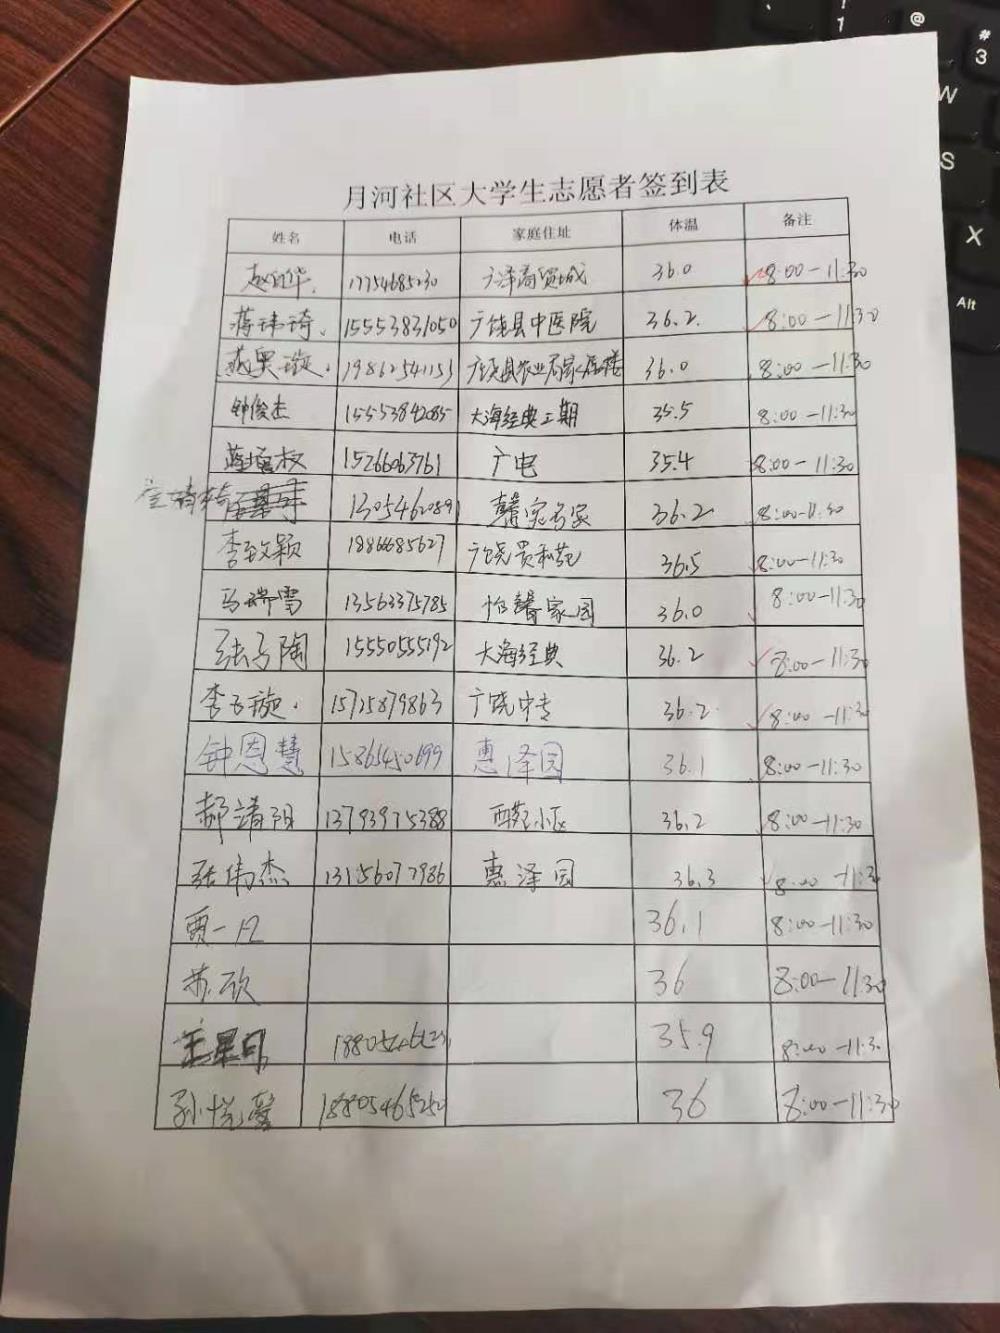 月河社区大学生志愿者签到表
姓名 电话 家庭住址 体温 备注
17754685230 广泽商贸城 36.0 8:00-11:30
蒋玮琦 15553831050 广饶县中医院 36.2 8:00-11:30
19862541153 广饶县农业局家属楼 36.0 8:00-11:30
钟俊杰 15553842085 大海经典二期 35.5 8:00-11:30
15266063761 广电 35.4 8:00-11:30
1305462089 馨家名家 36.2 8:00-11:30
李致颖 1886685627 广饶贵和苑 36.5 8:00-11:30
马瑞雪 13563375785 怡馨家园 36.0 8:00-11:30
张子陶 15550555192 大海经典 36.2 8:00-11:30
李飞璇 15725879863 广饶中专 36.2 8:00-11:30
钟恩慧 15865450699 惠泽园 36.1 8:00-11:30
郝靖阳 13793975388 西苑小区 36.2 8:00-11:30
张伟杰 13156077986 惠泽园 36.3 8:00-11:30
贾一凡 36.1 8:00-11:30
苏欣 36 8:00-11:30
35.9 8:00-11:30
孙悦馨 18805465250 36 8:00-11:30
@
#
1
3
W
S
X
Alt